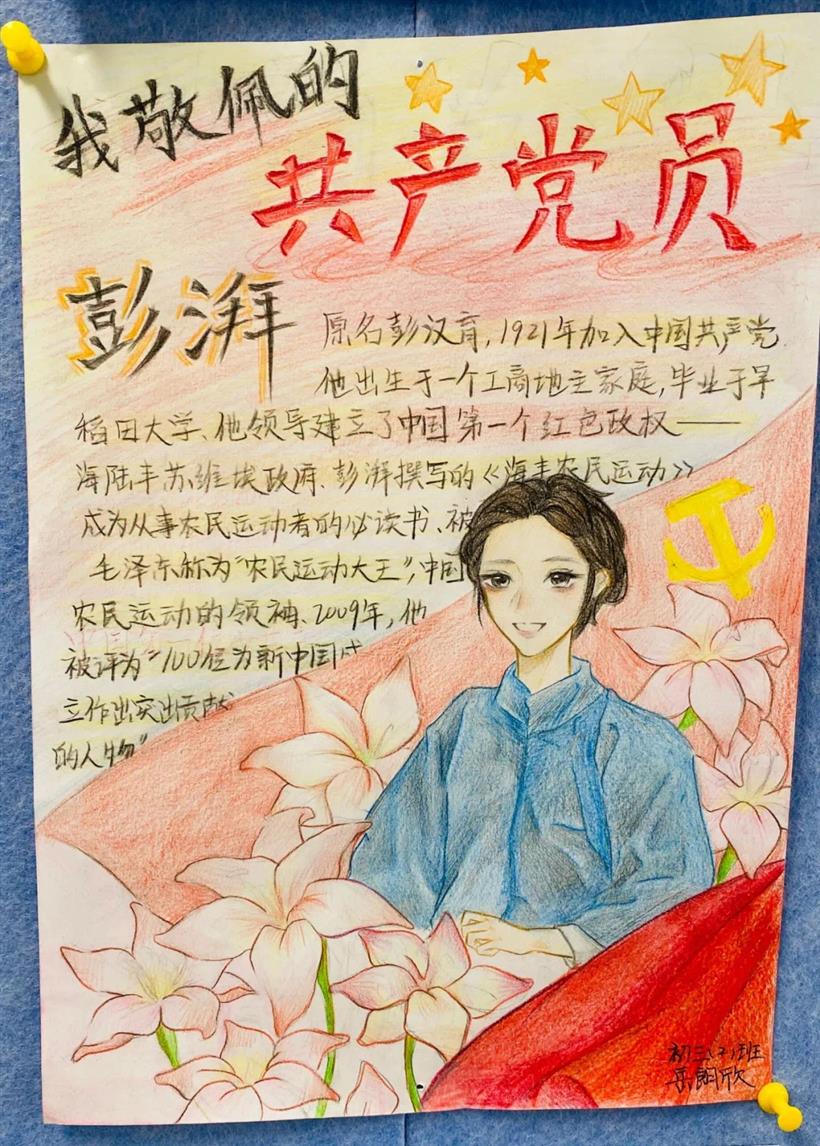 我敬佩的
共产党员
彭湃
原名彭汉育,1921年加入中国共产党
他出生于一个工商地主家庭,毕业于早
稻田大学、他领导建立了中国第一个红色政权——
海陆丰苏维埃政府、彭湃撰写的《海丰农民运动》
成为从事农民运动者的必读书、被
毛泽东称为“农民运动大王”,中国
农民运动的领袖、2009年,他
被评为“100位为新中国成
立作出突出贡献
的人物”
初三(7)班